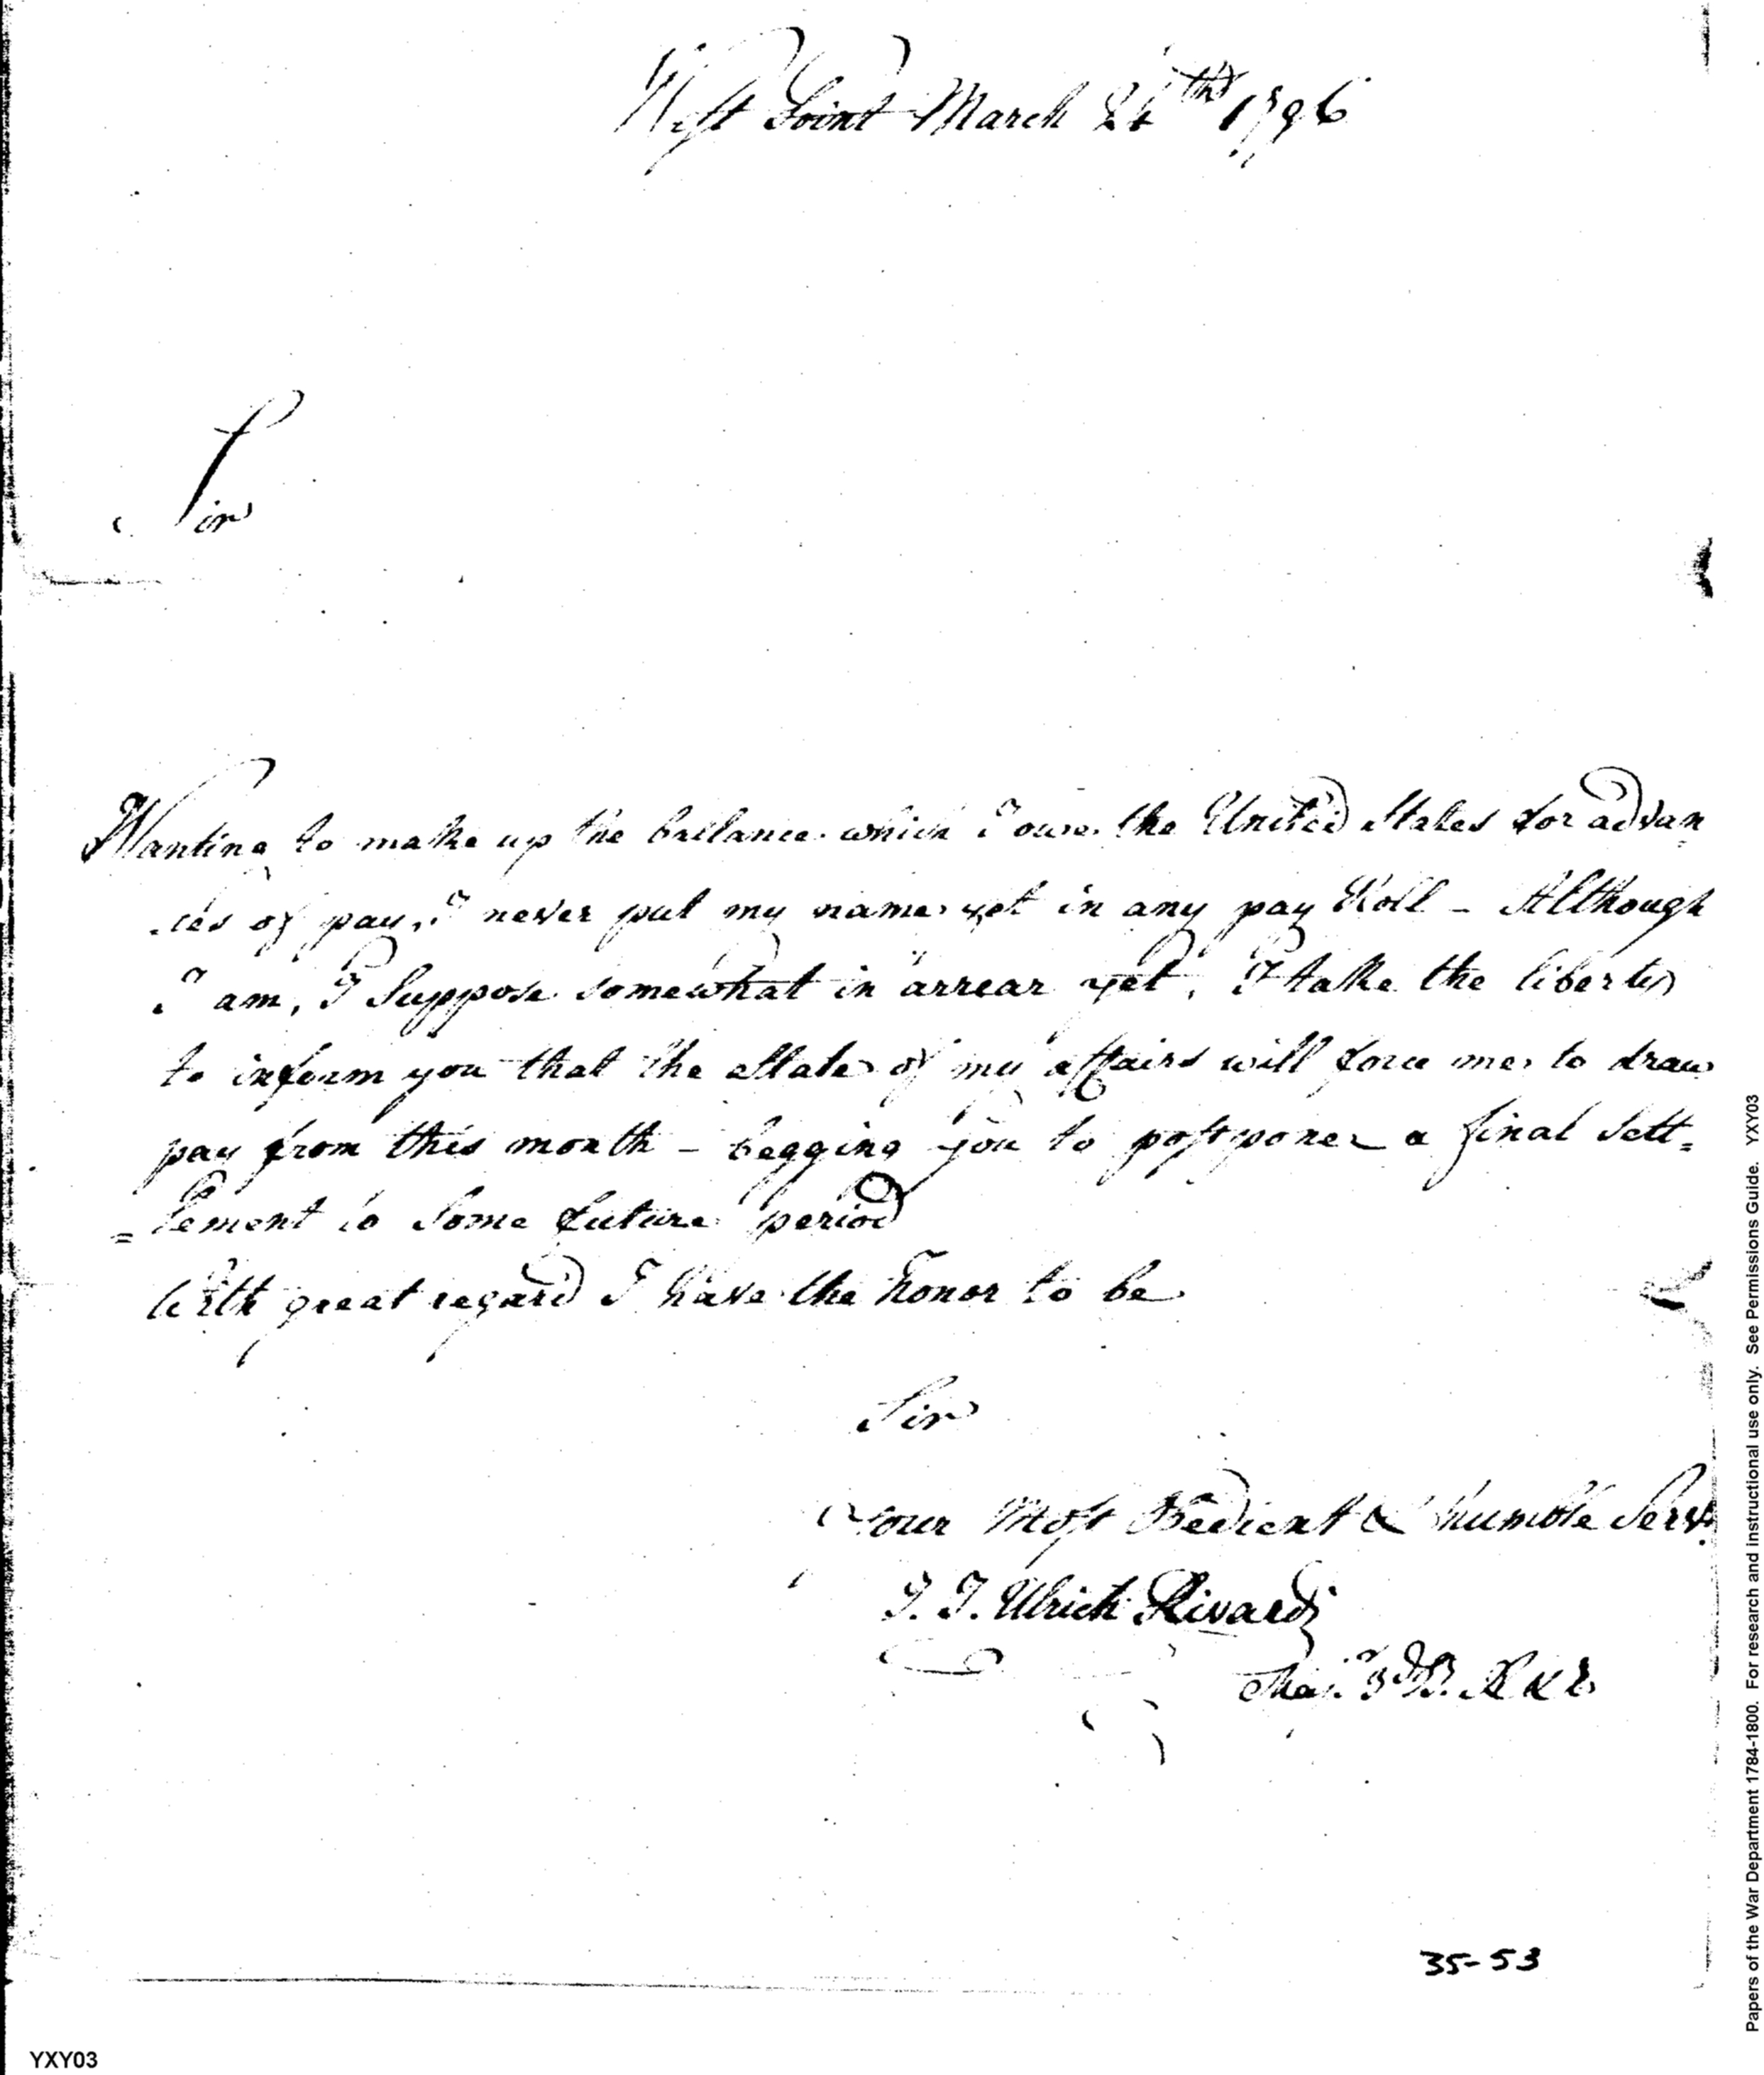 West Point March 24th 1796
Sir
Wanting to make up the ballance which I owe the United States for advan
ces of pay, I never put my name yet in any pay Roll - Although
I am, I Suppose somewhat in arrear yet, I take the liberty
to inform you that the state of my affairs will force me to draw
pay from this month - begging you to postpone a final Sett=
=lement to Some future period
With great regard I have the honor to be
Sir
Your Most Obedient & humble Servt.
J. J. Ulrich Rivardi
Maj. 3d B.
35-53
YXY03
Papers of the War Department 1784-1800. For research and instructional use only. See Permissions Guide. YXY03